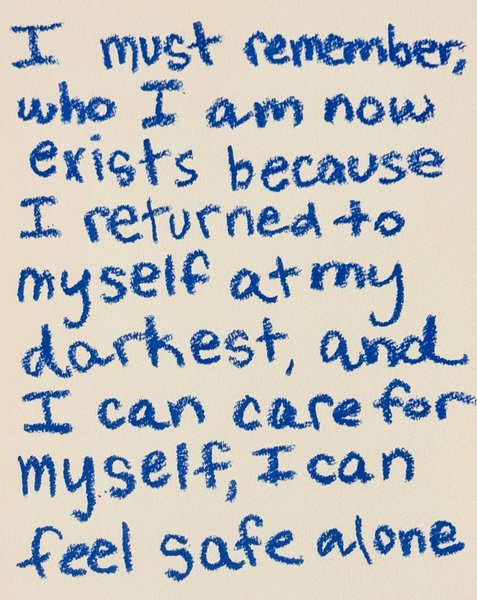 I must remember,
who I am now
exists because
I returned to
myself at my
darkest, and
I can care for
myself, I can
feel safe alone